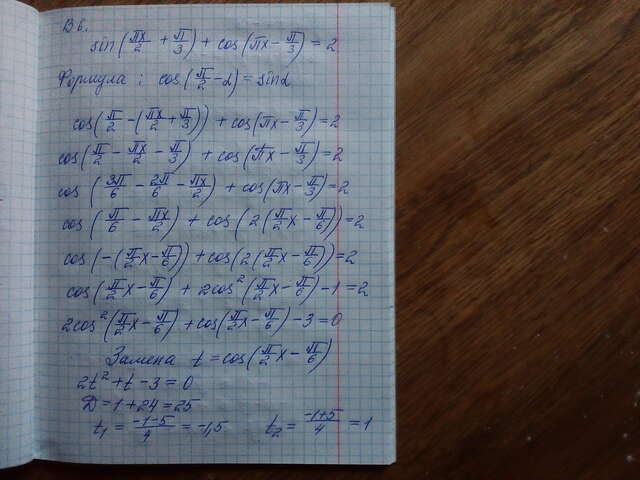 В6.
sin(πx/2 + π/3) + cos(πx − π/3) = 2
Формула : cos(π/2 − α) = sinα
cos(π/2 − (πx/2 + π/3)) + cos(πx − π/3) = 2
cos(π/2 − πx/2 − π/3) + cos(πx − π/3) = 2
cos(3π/6 − 2π/6 − πx/2) + cos(πx − π/3) = 2
cos(π/6 − πx/2) + cos(2(π/2 x − π/6)) = 2
cos(−(π/2 x − π/6)) + cos(2(π/2 x − π/6)) = 2
cos(π/2 x − π/6) + 2cos²(π/2 x − π/6) − 1 = 2
2cos²(π/2 x − π/6) + cos(π/2 x − π/6) − 3 = 0
Замена t = cos(π/2 x − π/6)
2t² + t − 3 = 0
D = 1 + 24 = 25
t₁ = −1−5/4 = −1,5 t₂ = −1+5/4 = 1